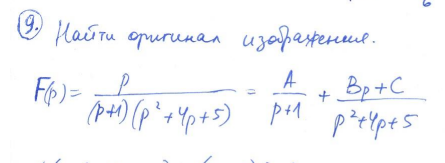 9. Найти оригинал изображения.
F(p) = p / ((p+1)(p²+4p+5)) = A / (p+1) + (Bp+C) / (p²+4p+5)